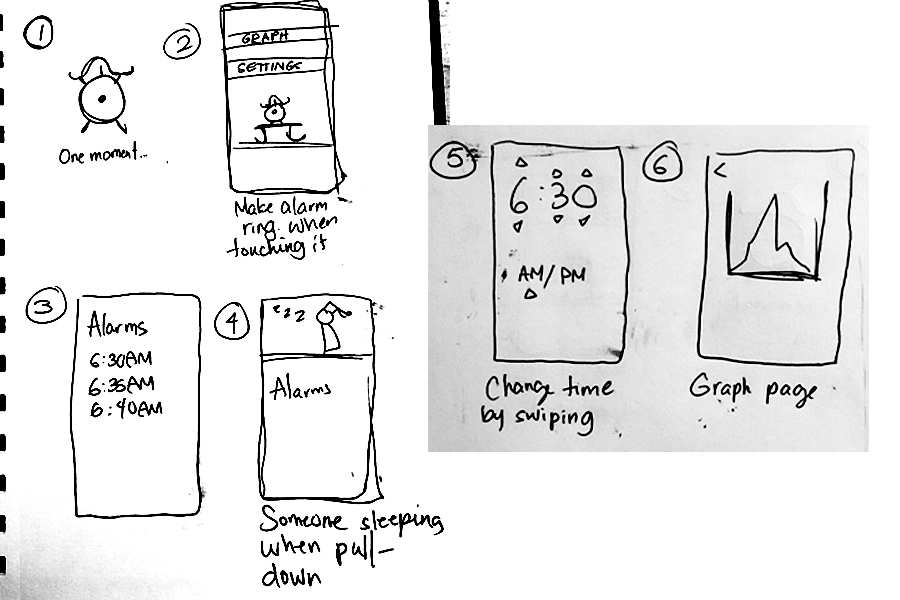 1
One moment...
2
GRAPH
SETTINGS
Make alarm
ring when
touching it
3
Alarms
6:30AM
6:35AM
6:40AM
4
zzz
Alarms
Someone sleeping
when pull-
down
5
6:30
AM/PM
Change time
by swiping
6
<
Graph page